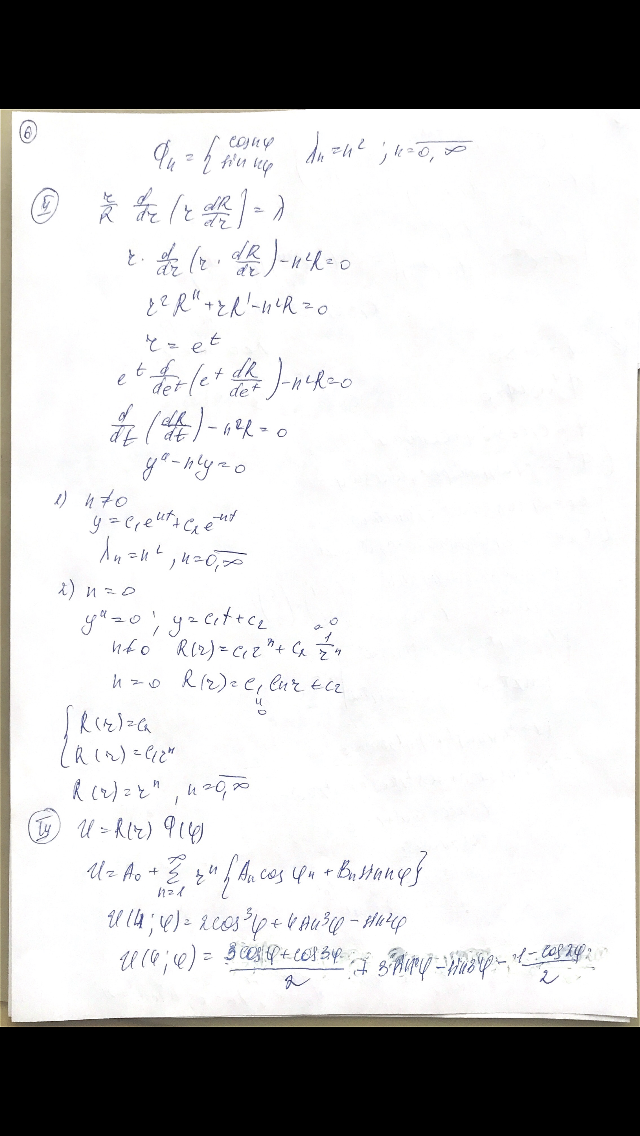 6
Φₙ = { cos nφ sin nφ λₙ = n² ; n = 0,∞
III
r/R d/dr (r dR/dr) = λ
r · d/dr (r · dR/dr) - n²R = 0
r²R'' + rR' - n²R = 0
r = eᵗ
eᵗ d/deᵗ (eᵗ dR/deᵗ) - n²R = 0
d/dt (dR/dt) - n²R = 0
y'' - n²y = 0
1) n ≠ 0
y = c₁eⁿᵗ + c₂e⁻ⁿᵗ
λₙ = n², n = 0,∞
2) n = 0
y'' = 0 ; y = c₁t + c₂
n ≠ 0 R(r) = c₁rⁿ + c₂ 1/rⁿ = 0
n = 0 R(r) = c₁ ln r + c₂
0
{ R(r) = c₂
R(r) = c₁rⁿ
R(r) = rⁿ, n = 0,∞
IV U = R(r) Φ(φ)
U = A₀ + ∑ₙ₌₁^∞ rⁿ {Aₙ cos φn + Bₙ sin nφ}
U(4; φ) = 2cos³φ + 4sin³φ - sin²φ
U(4; φ) = (3cosφ + cos3φ)/2 + 3sinφ - sin3φ - (1 - cos2φ)/2